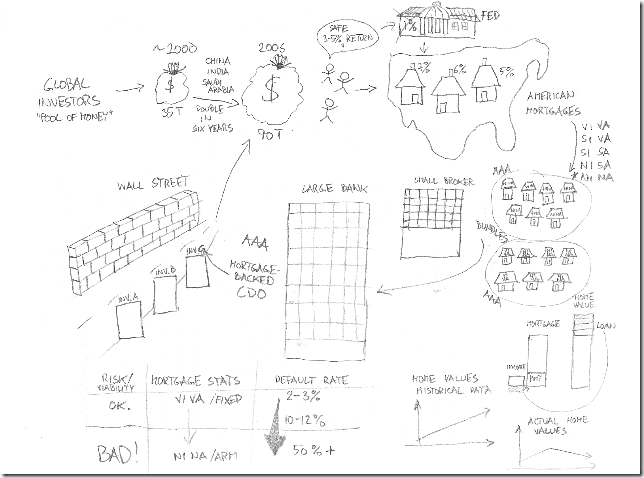 ~2000
2006
CHINA
INDIA
SAUDI
ARABIA
DOUBLE
IN
SIX YEARS
GLOBAL
INVESTORS
"POOL OF MONEY"
$
35T
$
70T
SAFE
3-5% RETURN
FED
1%
6%
5%
AMERICAN
MORTGAGES
VI VA
SI VA
SI SA
NI SA
NI NA
WALL STREET
INV. A
INV. B
INV. C
AAA
MORTGAGE-
BACKED
CDO
LARGE BANK
SMALL BROKER
AAA
BUNDLES
AAA
HOME
VALUE
MORTGAGE
LOAN
INCOME
RISK/
VIABILITY
MORTGAGE STATS
DEFAULT RATE
OK.
VI VA /FIXED
2-3%
10-12%
BAD!
NI NA/ARM
50%+
HOME VALUES
HISTORICAL DATA
ACTUAL HOME
VALUES